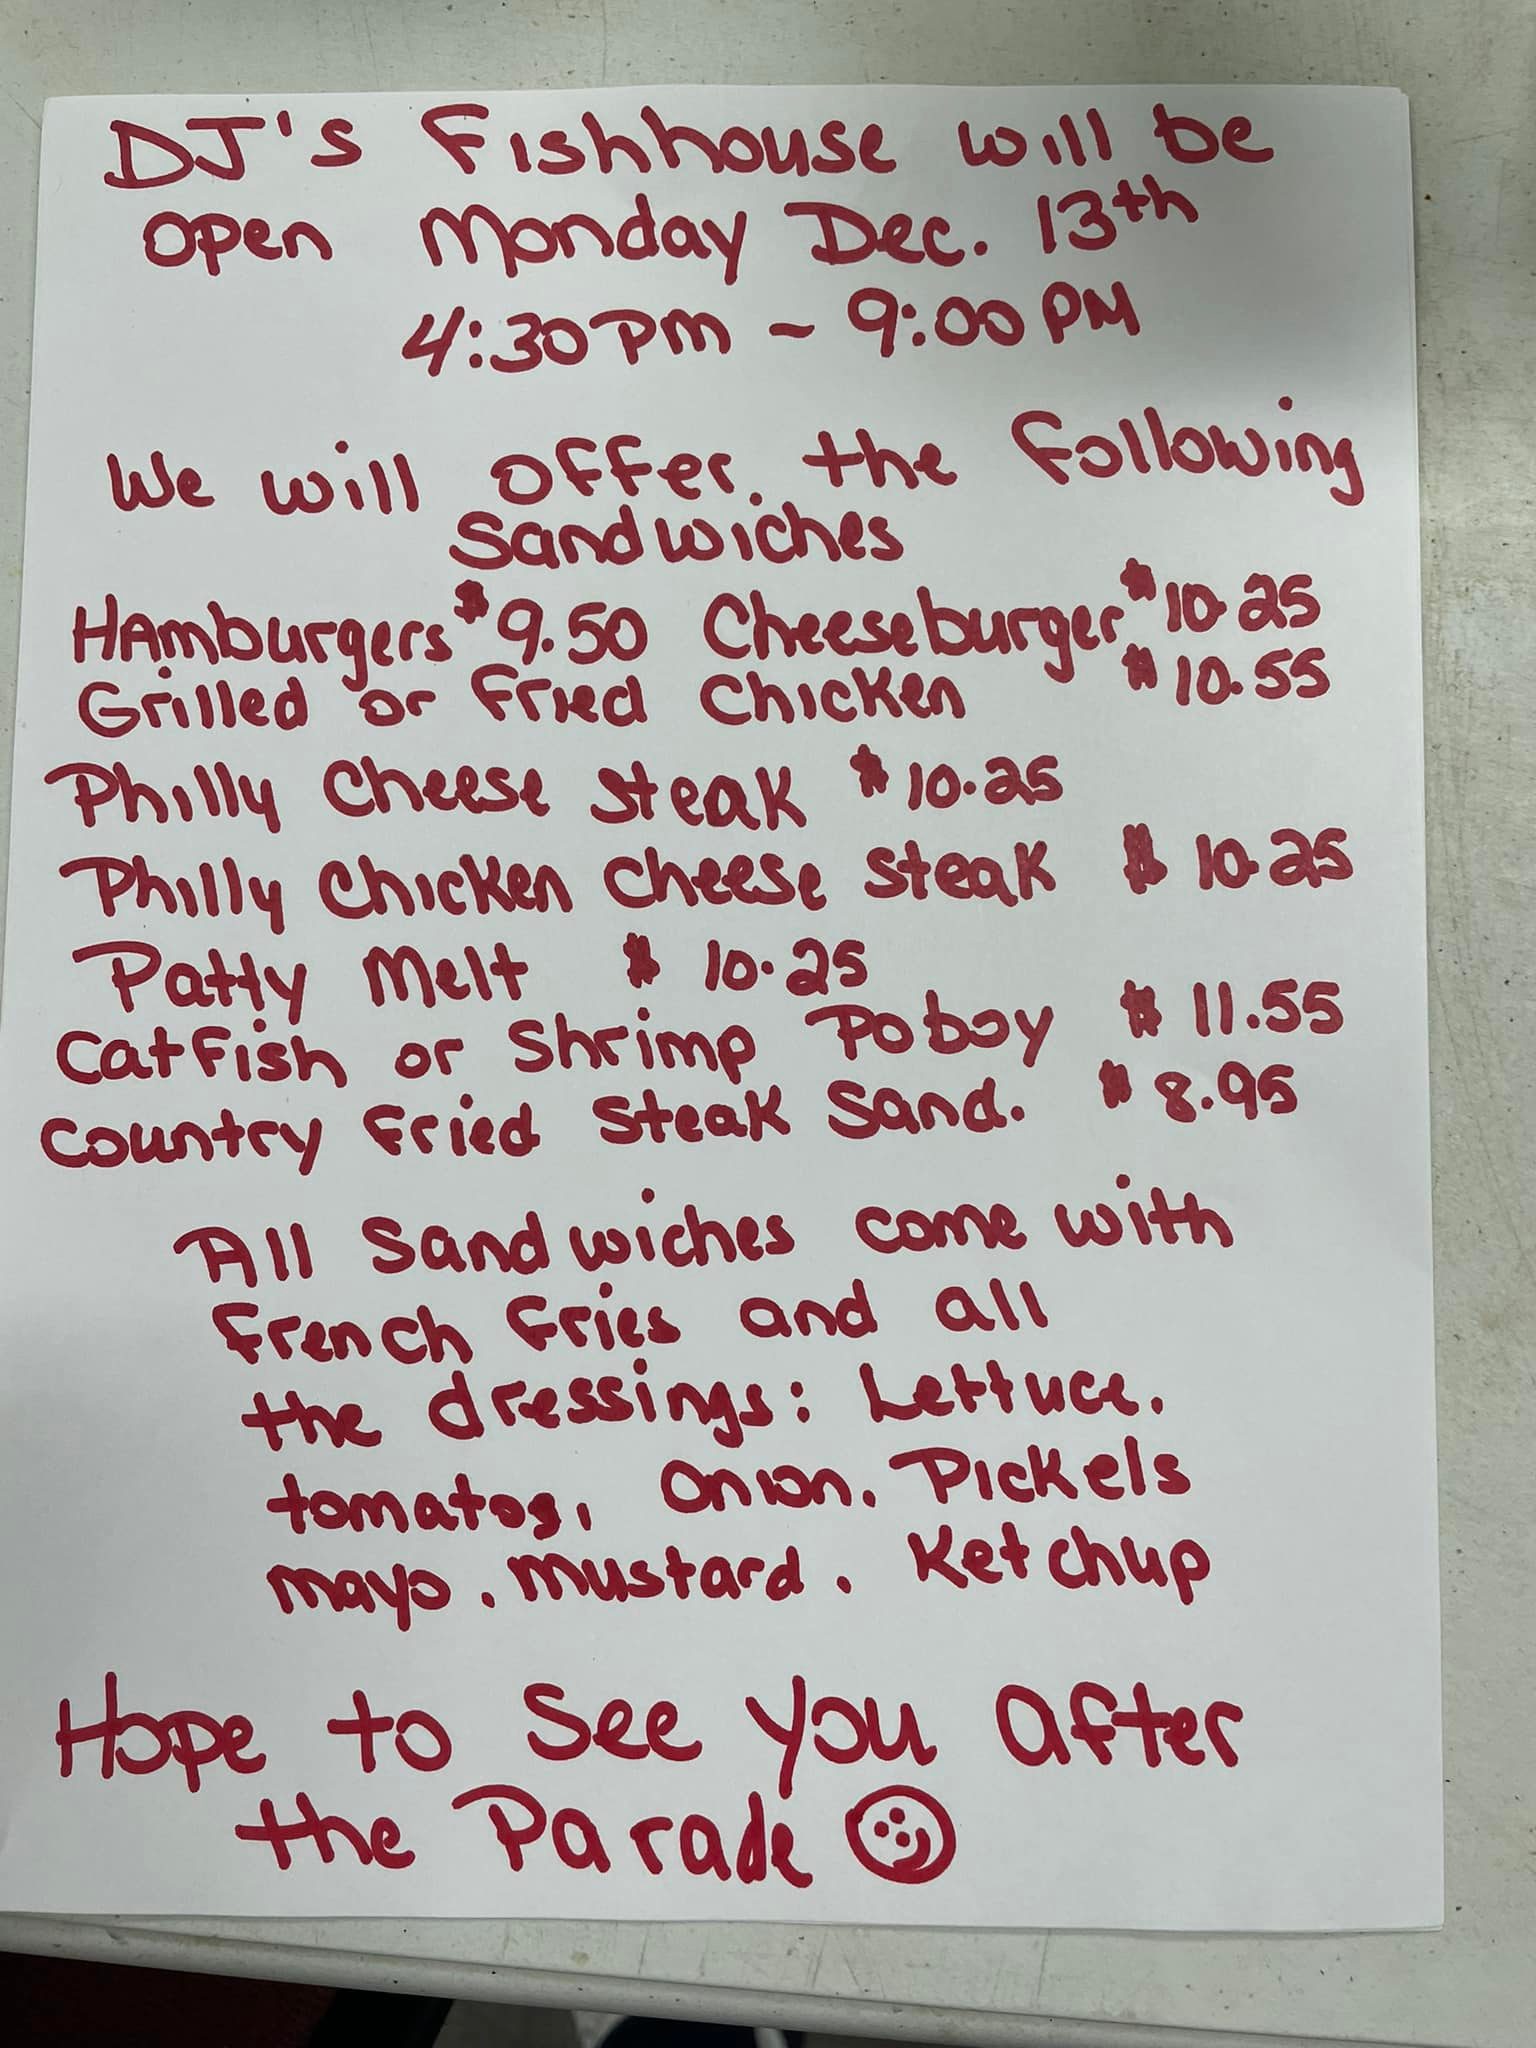 DJ's Fishhouse will be
open Monday Dec. 13th
4:30PM ~ 9:00PM
We will offer the following
Sandwiches
Hamburgers $9.50 Cheeseburger $10.25
Grilled or Fried Chicken $10.55
Philly Cheese Steak $10.25
Philly Chicken Cheese Steak $10.25
Patty Melt $10.25
Catfish or Shrimp Poboy $11.55
Country Fried Steak Sand. $8.95
All Sandwiches come with
French Fries and all
the dressings: Lettuce.
tomatos, Onion. Pickels
mayo. mustard. Ketchup
Hope to See You After
the Parade